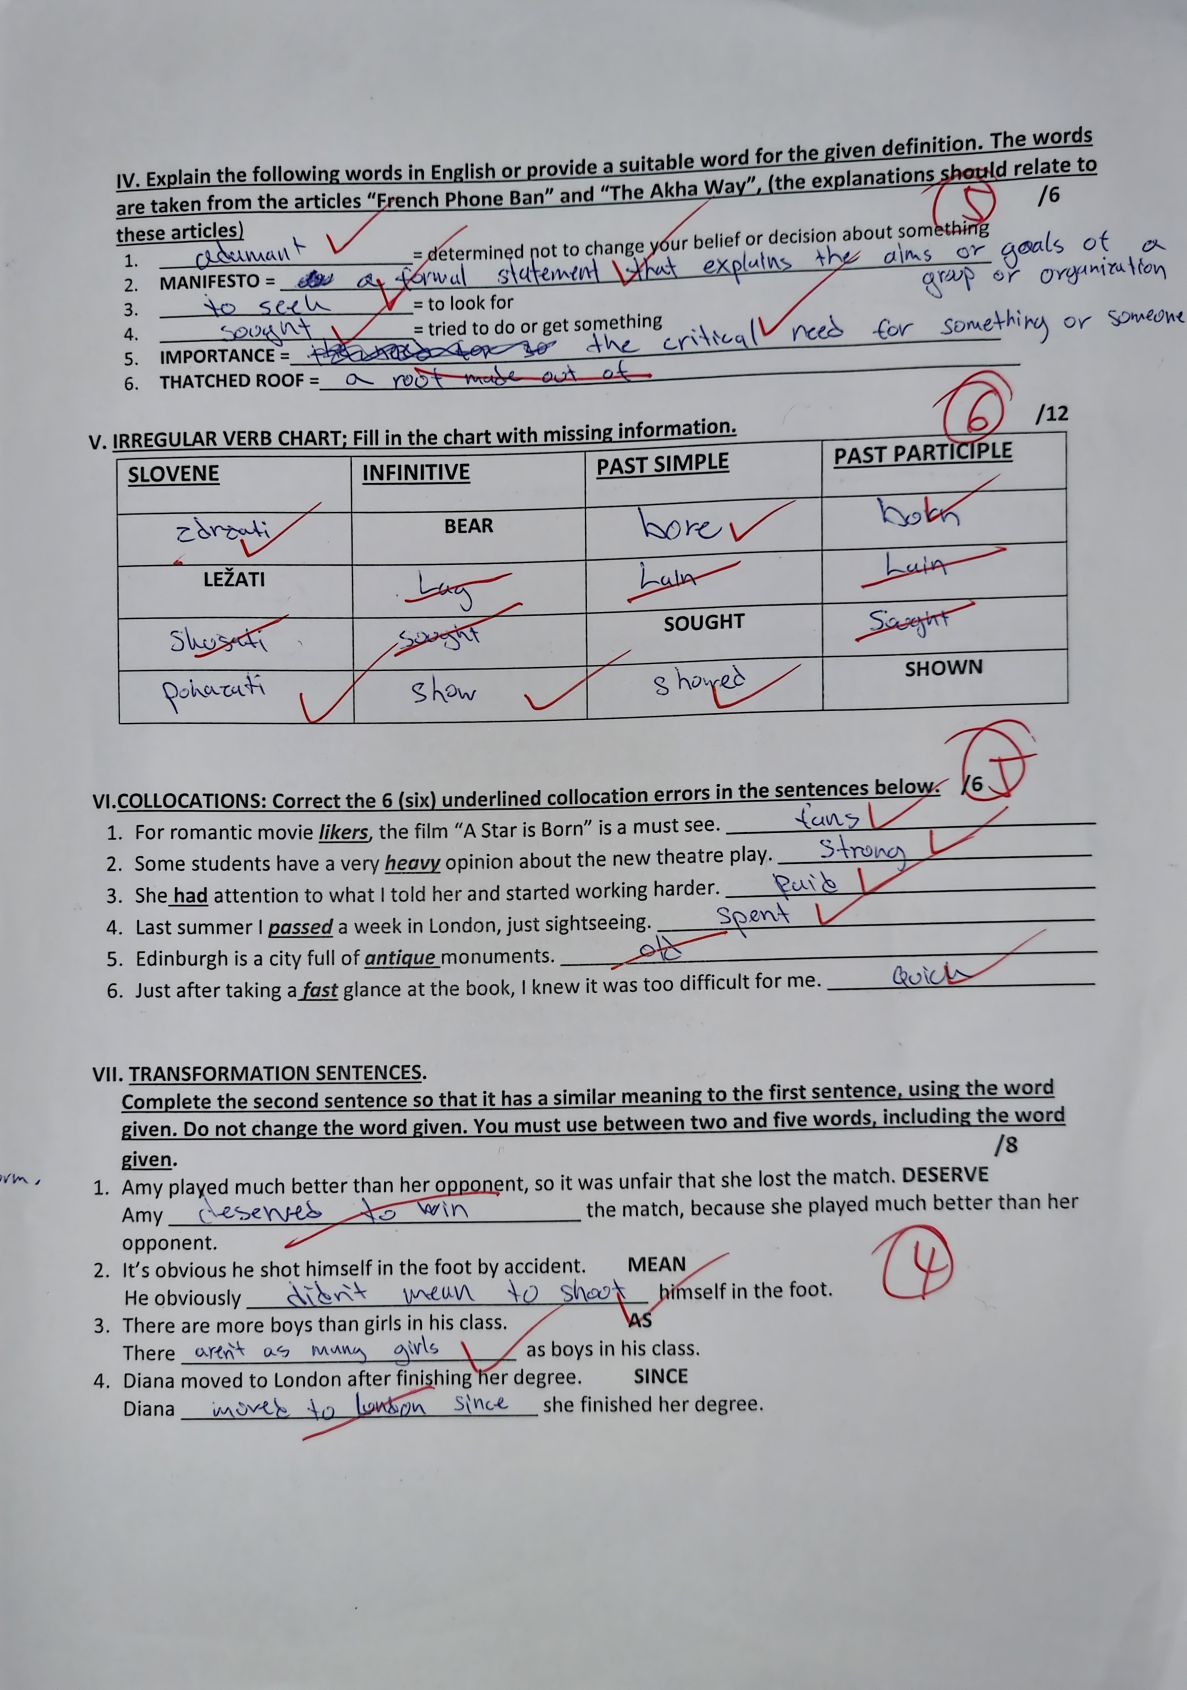 IV. Explain the following words in English or provide a suitable word for the given definition. The words
are taken from the articles “French Phone Ban” and “The Akha Way”, (the explanations should relate to
these articles)
5 /6
1. adamant = determined not to change your belief or decision about something
2. MANIFESTO = a formal statement that explains the aims or goals of a
group or organization
3. to seek = to look for
4. sought = tried to do or get something
5. IMPORTANCE = the critical need for something or someone
6. THATCHED ROOF = a roof made out of
6 /12
V. IRREGULAR VERB CHART; Fill in the chart with missing information.
SLOVENE INFINITIVE PAST SIMPLE PAST PARTICIPLE
zdržati BEAR bore born
LEŽATI Lay Lain Lain
Skušati sought SOUGHT Sought
pokazati show showed SHOWN
VI.COLLOCATIONS: Correct the 6 (six) underlined collocation errors in the sentences below. /6 5
1. For romantic movie likers, the film “A Star is Born” is a must see. fans
2. Some students have a very heavy opinion about the new theatre play. strong
3. She had attention to what I told her and started working harder. paid
4. Last summer I passed a week in London, just sightseeing. spent
5. Edinburgh is a city full of antique monuments. old
6. Just after taking a fast glance at the book, I knew it was too difficult for me. Quick
VII. TRANSFORMATION SENTENCES.
Complete the second sentence so that it has a similar meaning to the first sentence, using the word
given. Do not change the word given. You must use between two and five words, including the word
given.
/8
1. Amy played much better than her opponent, so it was unfair that she lost the match. DESERVE
Amy deserved to win the match, because she played much better than her
opponent.
4
2. It’s obvious he shot himself in the foot by accident. MEAN
He obviously didn't mean to shoot himself in the foot.
3. There are more boys than girls in his class. AS
There aren't as many girls as boys in his class.
4. Diana moved to London after finishing her degree. SINCE
Diana moved to London since she finished her degree.